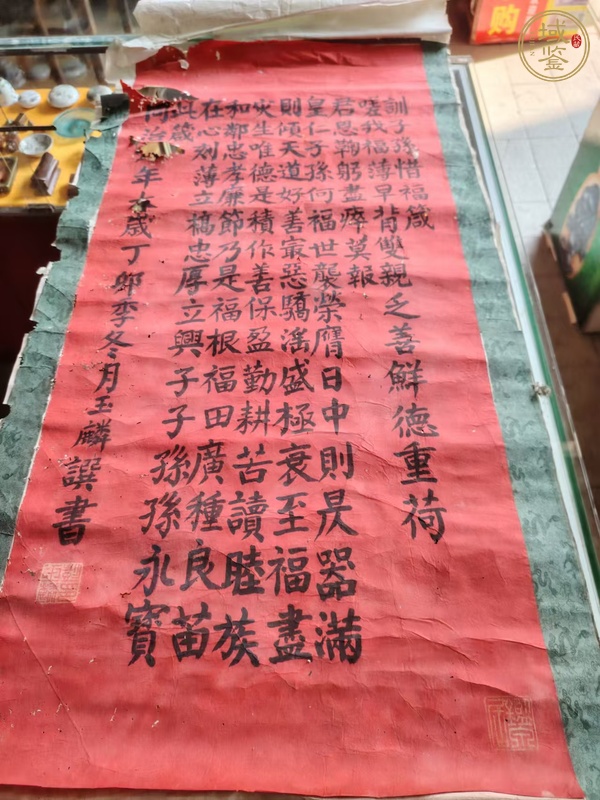 訓子孫惜福箴
嗟我福薄早背雙親乏善鮮德重荷
君恩鞠躬盡瘁莫報
皇仁子孫何福世襲榮膺日中則昃器滿
則傾天道好善最惡驕滛盛極衰至福盡
火生唯德是積作善保盈勤耕苦讀睦族
和鄰忠孝廉節乃是福根福田廣種良苗
在心刻薄立槁忠厚立興子子孫孫永寶
箴
同治年歲丁卯季冬月玉麟譔書
购
域鉴